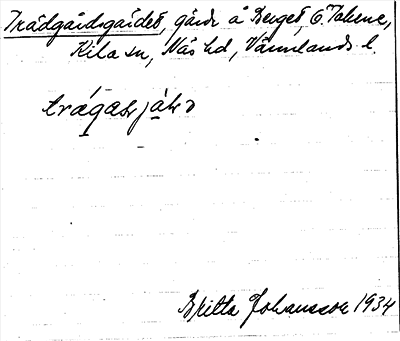 Trädgårdsgärdet, gärde å Berget, G. Takene,
Kila sn, Näs hd, Värmlands l.
Britta Johansson 1934